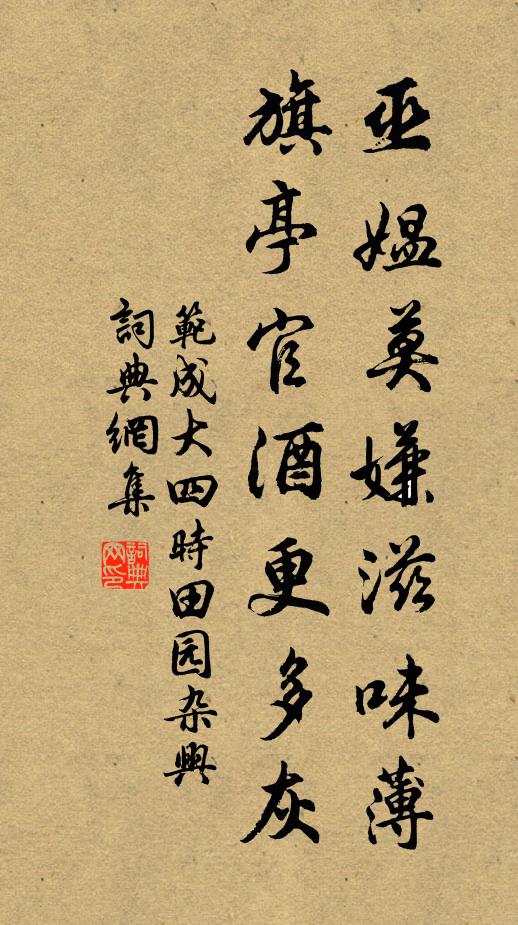 巫媼莫嫌滋味薄
旗亭官酒更多灰
範成大四時田园杂興
詞典網集
詞典網印